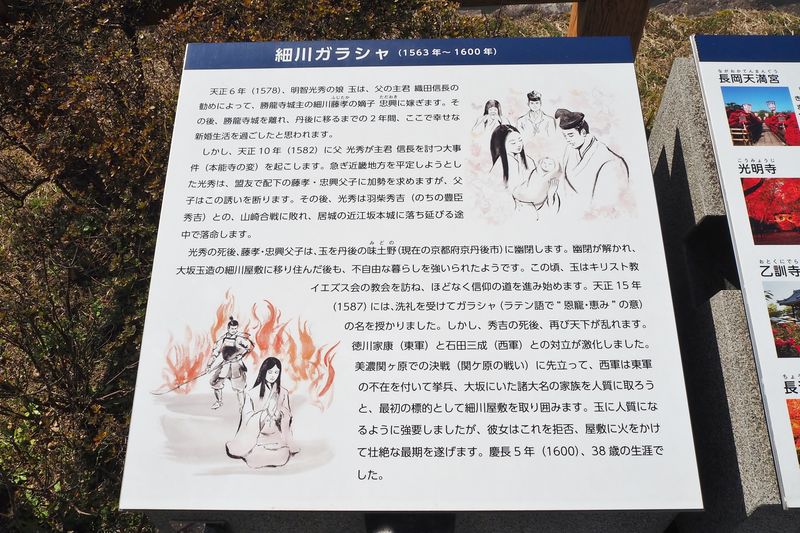 細川ガラシャ（1563年～1600年）
天正6年（1578）、明智光秀の娘 玉は、父の主君 織田信長の
勧めによって、勝龍寺城主の細川藤孝の嫡子 忠興に嫁ぎます。そ
の後、勝龍寺城を離れ、丹後に移るまでの2年間、ここで幸せな
新婚生活を過ごしたと思われます。
しかし、天正10年（1582）に父 光秀が主君 信長を討つ大事
件（本能寺の変）を起こします。急ぎ近畿地方を平定しようとし
た光秀は、盟友で配下の藤孝・忠興父子に加勢を求めますが、父
子はこの誘いを断ります。その後、光秀は羽柴秀吉（のちの豊臣
秀吉）との、山崎合戦に敗れ、居城の近江坂本城に落ち延びる途
中で落命します。
光秀の死後、藤孝・忠興父子は、玉を丹後の味土野（現在の京都府京丹後市）に幽閉します。幽閉が解かれ、
大坂玉造の細川屋敷に移り住んだ後も、不自由な暮らしを強いられたようです。この頃、玉はキリスト教
イエズス会の教会を訪ね、ほどなく信仰の道を進み始めます。天正15年
（1587）には、洗礼を受けてガラシャ（ラテン語で“恩寵・恵み”の意）
の名を授かりました。しかし、秀吉の死後、再び天下が乱れます。
徳川家康（東軍）と石田三成（西軍）との対立が激化しました。
美濃関ヶ原での決戦（関ケ原の戦い）に先立って、西軍は東軍
の不在を付いて挙兵、大坂にいた諸大名の家族を人質に取ろう
と、最初の標的として細川屋敷を取り囲みます。玉に人質にな
るように強要しましたが、彼女はこれを拒否、屋敷に火をかけ
て壮絶な最期を遂げます。慶長5年（1600）、38歳の生涯で
した。
ながおかてんまんぐう
長岡天満宮
こうみょうじ
光明寺
おとくにでら
乙訓寺